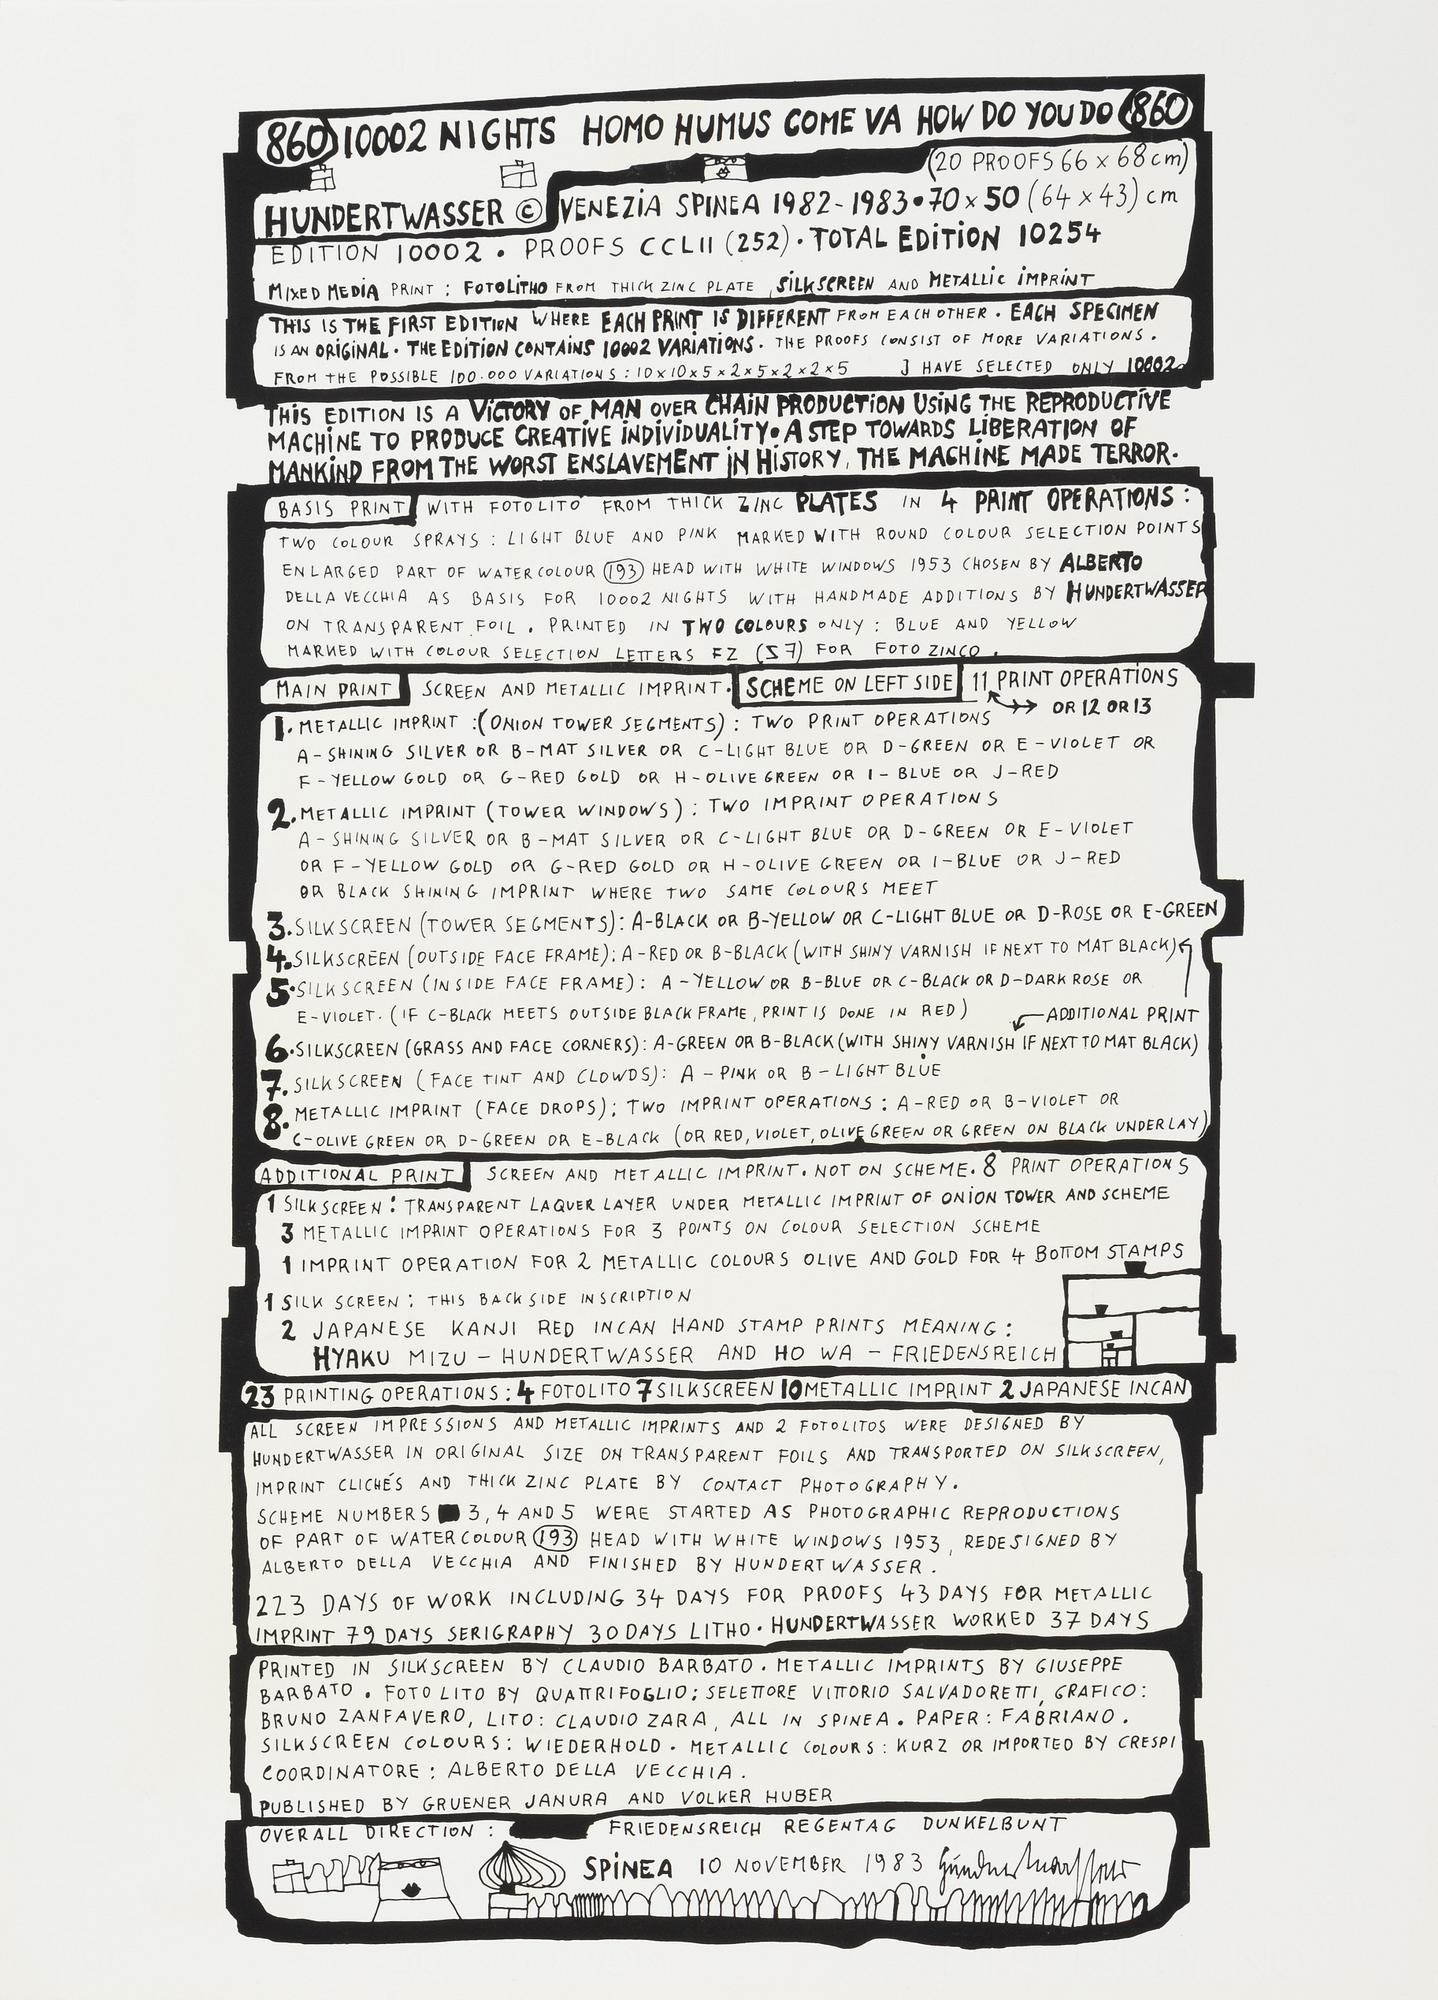 860 10002 NIGHTS HOMO HUMUS COME VA HOW DO YOU DO 860
(20 PROOFS 66 x 68 cm)
HUNDERTWASSER © VENEZIA SPINEA 1982-1983 • 70 x 50 (64 x 43) cm
EDITION 10002 • PROOFS CCLII (252) • TOTAL EDITION 10254
MIXED MEDIA PRINT : FOTOLITHO FROM THICK ZINC PLATE, SILKSCREEN AND METALLIC IMPRINT
THIS IS THE FIRST EDITION WHERE EACH PRINT IS DIFFERENT FROM EACH OTHER • EACH SPECIMEN
IS AN ORIGINAL • THE EDITION CONTAINS 10002 VARIATIONS • THE PROOFS CONSIST OF MORE VARIATIONS.
FROM THE POSSIBLE 100.000 VARIATIONS : 10x10x5x2x5x2x2x5 J HAVE SELECTED ONLY 10002
THIS EDITION IS A VICTORY OF MAN OVER CHAIN PRODUCTION USING THE REPRODUCTIVE
MACHINE TO PRODUCE CREATIVE INDIVIDUALITY • A STEP TOWARDS LIBERATION OF
MANKIND FROM THE WORST ENSLAVEMENT IN HISTORY, THE MACHINE MADE TERROR.
BASIS PRINT WITH FOTOLITO FROM THICK ZINC PLATES IN 4 PRINT OPERATIONS :
TWO COLOUR SPRAYS : LIGHT BLUE AND PINK MARKED WITH ROUND COLOUR SELECTION POINTS
ENLARGED PART OF WATERCOLOUR (193) HEAD WITH WHITE WINDOWS 1953 CHOSEN BY ALBERTO
DELLA VECCHIA AS BASIS FOR 10002 NIGHTS WITH HANDMADE ADDITIONS BY HUNDERTWASSER
ON TRANSPARENT FOIL . PRINTED IN TWO COLOURS ONLY : BLUE AND YELLOW
MARKED WITH COLOUR SELECTION LETTERS FZ (S7) FOR FOTO ZINCO .
MAIN PRINT SCREEN AND METALLIC IMPRINT • SCHEME ON LEFT SIDE 11 PRINT OPERATIONS
OR 12 OR 13
1. METALLIC IMPRINT : (ONION TOWER SEGMENTS) : TWO PRINT OPERATIONS
A-SHINING SILVER OR B-MAT SILVER OR C-LIGHT BLUE OR D-GREEN OR E-VIOLET OR
F-YELLOW GOLD OR G-RED GOLD OR H-OLIVE GREEN OR I-BLUE OR J-RED
2. METALLIC IMPRINT (TOWER WINDOWS) : TWO IMPRINT OPERATIONS
A-SHINING SILVER OR B-MAT SILVER OR C-LIGHT BLUE OR D-GREEN OR E-VIOLET
OR F-YELLOW GOLD OR G-RED GOLD OR H-OLIVE GREEN OR I-BLUE OR J-RED
OR BLACK SHINING IMPRINT WHERE TWO SAME COLOURS MEET
3. SILKSCREEN (TOWER SEGMENTS) : A-BLACK OR B-YELLOW OR C-LIGHT BLUE OR D-ROSE OR E-GREEN
4. SILKSCREEN (OUTSIDE FACE FRAME) : A-RED OR B-BLACK (WITH SHINY VARNISH IF NEXT TO MAT BLACK)
5. SILKSCREEN (INSIDE FACE FRAME) : A-YELLOW OR B-BLUE OR C-BLACK OR D-DARK ROSE OR
E-VIOLET. (IF C-BLACK MEETS OUTSIDE BLACK FRAME, PRINT IS DONE IN RED) ADDITIONAL PRINT
6. SILKSCREEN (GRASS AND FACE CORNERS) : A-GREEN OR B-BLACK (WITH SHINY VARNISH IF NEXT TO MAT BLACK)
7. SILKSCREEN (FACE TINT AND CLOWDS) : A-PINK OR B-LIGHT BLUE
8. METALLIC IMPRINT (FACE DROPS) ; TWO IMPRINT OPERATIONS : A-RED OR B-VIOLET OR
C-OLIVE GREEN OR D-GREEN OR E-BLACK (OR RED, VIOLET, OLIVE GREEN OR GREEN ON BLACK UNDERLAY)
ADDITIONAL PRINT SCREEN AND METALLIC IMPRINT. NOT ON SCHEME. 8 PRINT OPERATIONS
1 SILKSCREEN : TRANSPARENT LAQUER LAYER UNDER METALLIC IMPRINT OF ONION TOWER AND SCHEME
3 METALLIC IMPRINT OPERATIONS FOR 3 POINTS ON COLOUR SELECTION SCHEME
1 IMPRINT OPERATION FOR 2 METALLIC COLOURS OLIVE AND GOLD FOR 4 BOTTOM STAMPS
1 SILK SCREEN : THIS BACKSIDE INSCRIPTION
2 JAPANESE KANJI RED INCAN HAND STAMP PRINTS MEANING :
HYAKU MIZU - HUNDERTWASSER AND HO WA - FRIEDENSREICH
23 PRINTING OPERATIONS : 4 FOTOLITO 7 SILKSCREEN 10 METALLIC IMPRINT 2 JAPANESE INCAN
ALL SCREEN IMPRESSIONS AND METALLIC IMPRINTS AND 2 FOTOLITOS WERE DESIGNED BY
HUNDERTWASSER IN ORIGINAL SIZE ON TRANSPARENT FOILS AND TRANSPORTED ON SILKSCREEN,
IMPRINT CLICHÉS AND THICK ZINC PLATE BY CONTACT PHOTOGRAPHY.
SCHEME NUMBERS 3, 4 AND 5 WERE STARTED AS PHOTOGRAPHIC REPRODUCTIONS
OF PART OF WATERCOLOUR (193) HEAD WITH WHITE WINDOWS 1953, REDESIGNED BY
ALBERTO DELLA VECCHIA AND FINISHED BY HUNDERTWASSER.
223 DAYS OF WORK INCLUDING 34 DAYS FOR PROOFS 43 DAYS FOR METALLIC
IMPRINT 79 DAYS SERIGRAPHY 30 DAYS LITHO • HUNDERTWASSER WORKED 37 DAYS
PRINTED IN SILKSCREEN BY CLAUDIO BARBATO • METALLIC IMPRINTS BY GIUSEPPE
BARBATO • FOTOLITO BY QUATTRIFOGLIO ; SELETTORE VITTORIO SALVADORETTI, GRAFICO :
BRUNO ZANFAVERO, LITO : CLAUDIO ZARA, ALL IN SPINEA . PAPER : FABRIANO .
SILKSCREEN COLOURS : WIEDERHOLD • METALLIC COLOURS : KURZ OR IMPORTED BY CRESPI
COORDINATORE : ALBERTO DELLA VECCHIA .
PUBLISHED BY GRUENER JANURA AND VOLKER HUBER
OVERALL DIRECTION : FRIEDENSREICH REGENTAG DUNKELBUNT
SPINEA 10 NOVEMBER 1983 Hundertwasser